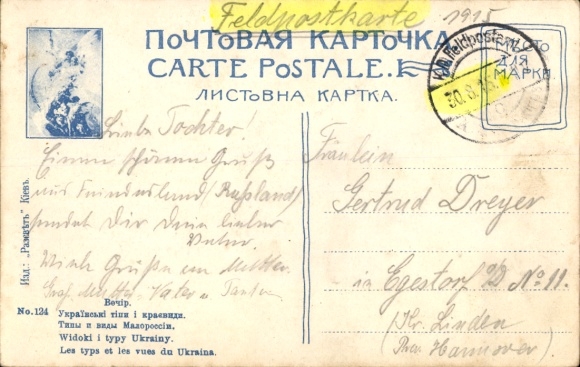 Feldpostkarte 1915
ПОЧТОВАЯ КАРТОЧКА
CARTE POSTALE.
ЛИСТОВНА КАРТКА.
МѢСТО
ДЛЯ
МАРКИ
K.D. Feldpost
30.8.15
Liebe Tochter!
Einen schönen Gruß
aus Feindesland (Rußland)
sendet Dir Dein lieber
Vater.
Viele Grüße an Mutter.
Großmutter, Vater u Tante
Fräulein
Gertrud Dreyer
in Egestorf a/D No 11.
(Kr. Linden
Prov Hannover)
Изд. „Разсвѣтъ" Кіевъ.
No. 124
Вечір.
Українські тіпи і краєвиди.
Типы и виды Малороссіи.
Widoki i typy Ukrainy.
Les typs et les vues du Ukraina.